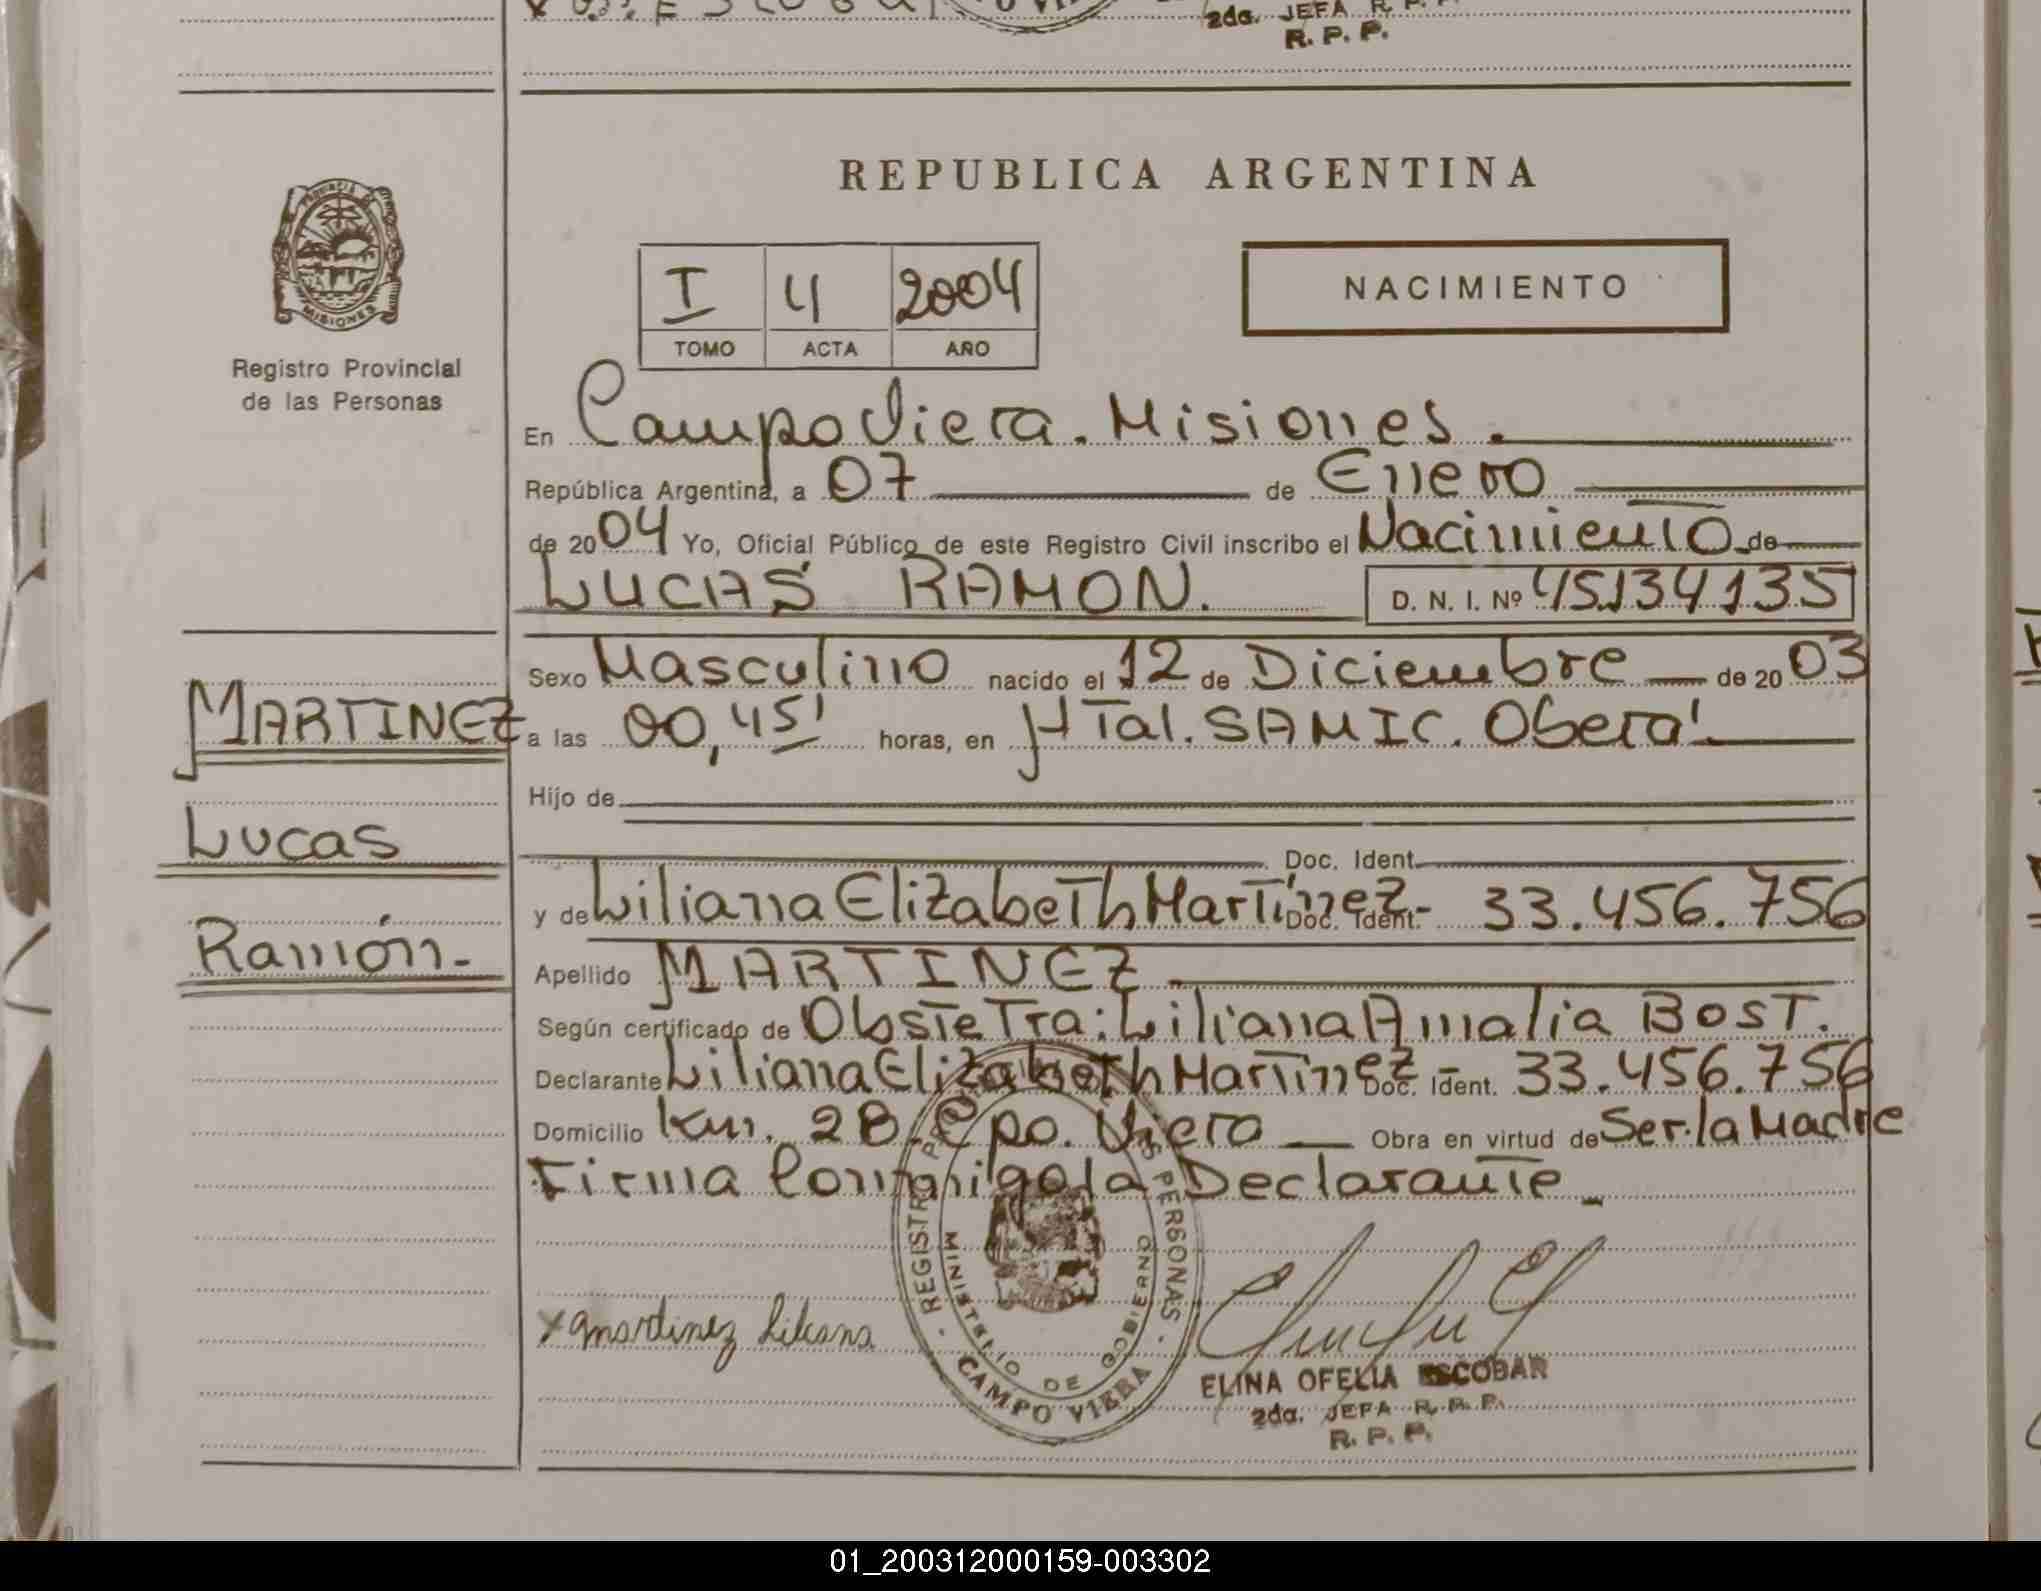 2da. JEFA R. P. P.
R. P. P.
REPUBLICA ARGENTINA
PROVINCIA DE
MISIONES
I 4 2004
TOMO ACTA AÑO
NACIMIENTO
Registro Provincial
de las Personas
En Campo Viera. Misiones.
República Argentina, a 07 de Enero
de 2004 Yo, Oficial Público de este Registro Civil inscribo el Nacimiento de
LUCAS RAMON. D. N. I. Nº 45.134.135
Sexo Masculino nacido el 12 de Diciembre de 2003
MARTINEZ
a las 00,45' horas, en HTal. SAMIC. Oberá.
Hijo de
Lucas
Doc. Ident.
y de Liliana Elizabeth Martínez - Doc. Ident. 33.456.756
Ramón.-
Apellido MARTINEZ
Según certificado de Obstetra: Liliana Amalia BOST.
Declarante Liliana Elizabeth Martínez - Doc. Ident. 33.456.756
Domicilio Km. 28. Cpo. Viera Obra en virtud de Ser la Madre
Firma Conmigo la Declarante -
x martinez Liliana
REGISTRO PROVINCIAL DE LAS PERSONAS
MINISTERIO DE GOBIERNO
CAMPO VIERA
ELINA OFELIA ESCOBAR
2da. JEFA R. P. P.
R. P. P.
01_200312000159-003302